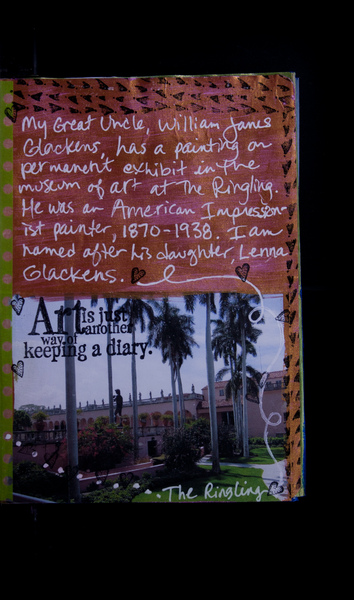 My Great Uncle, William James
Glackens, has a painting on
permanent exhibit in The
museum of art at The Ringling.
He was an American Impression-
ist painter, 1870-1938. I am
named after his daughter, Lenna
Glackens.
Art is just
another
way of
keeping a diary.
The Ringling